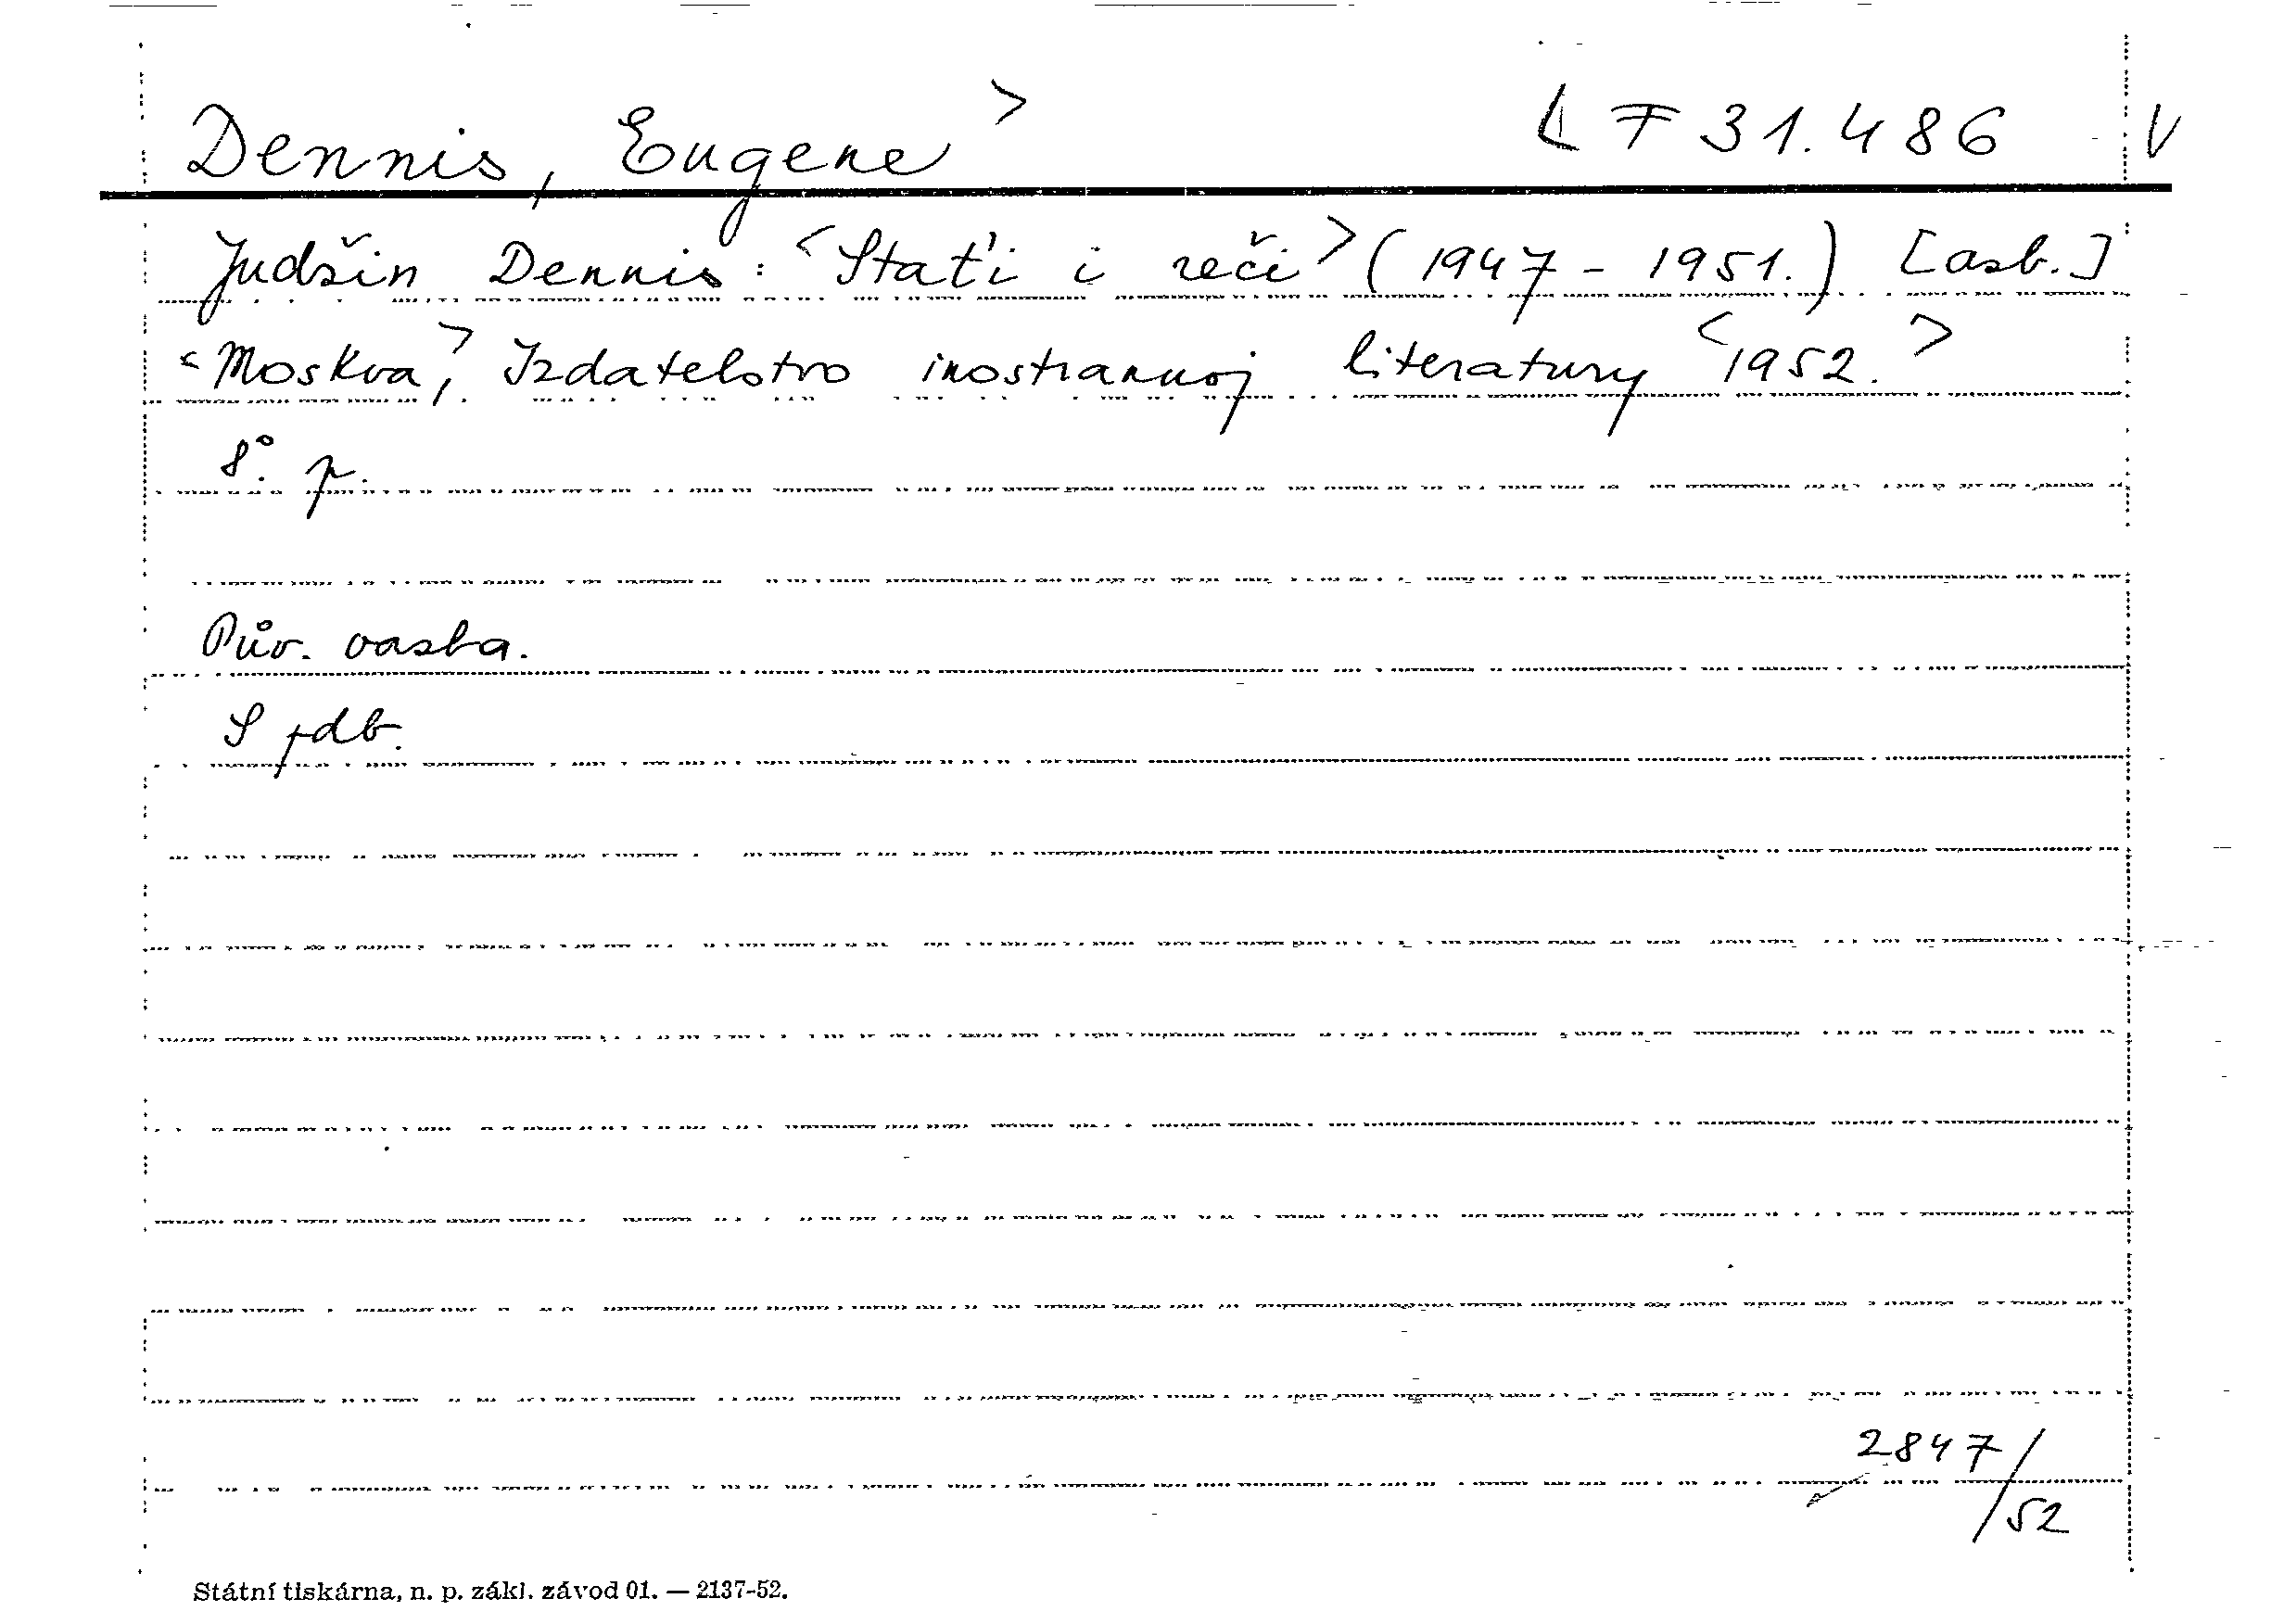 Dennis, Eugene > < F 31.486 V
Judžin Dennis: <Stat'i i reči> (1947-1951.) [asb.]
<Moskva,> Izdatelstvo inostrannoj literatury <1952.>
8°. p.
Pův. vazba.
S pdb.
2847/
/52
Státní tiskárna, n. p. zákl. závod 01. — 2137-52.